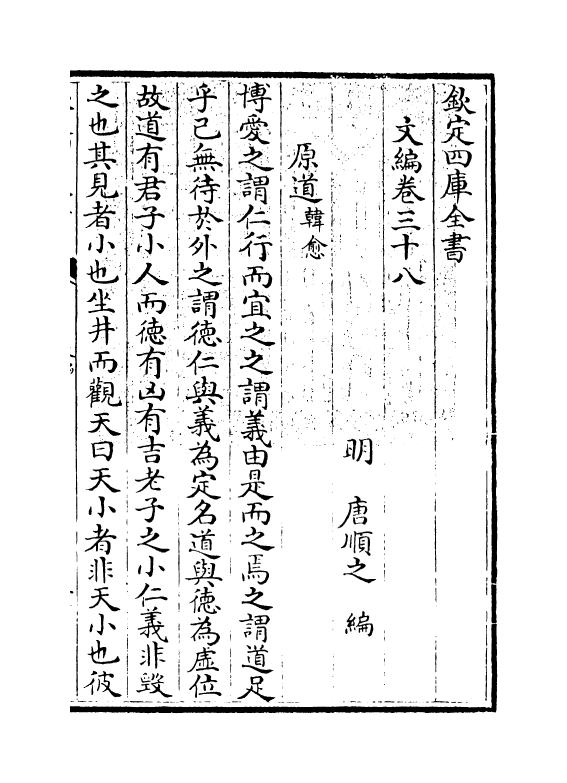 欽定四庫全書
文編卷三十八
明 唐順之 編
原道 韓愈
博愛之謂仁行而宜之之謂義由是而之焉之謂道足
乎己無待於外之謂徳仁與義為定名道與徳為虛位
故道有君子小人而徳有凶有吉老子之小仁義非毀
之也其見者小也坐井而觀天曰天小者非天小也彼